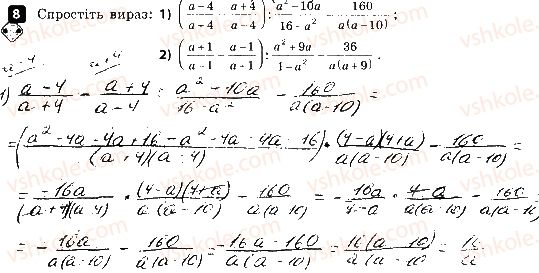 8 Спростіть вираз: 1) (a−4/a+4 − a+4/a−4) : a²−10a/16−a² − 160/a(a−10) ;
2) (a+1/a−1 − a−1/a+1) : a²+9a/1−a² − 36/a(a+9) .
a−4 a+4
1) a−4/a+4 − a+4/a−4 : a²−10a/16−a² − 160/a(a−10) =
= (a²−4a−4a+16−a²−4a−4a−16/(a+4)(a−4)) · (4−a)(4+a)/a(a−10) − 160/a(a−10) =
= −16a/(a+4)(a−4) · (4−a)(4+a)/a(a−10) − 160/a(a−10) = − 16a/4−a · 4−a/a(a−10) − 160/a(a−10) =
= − 16a/a(a−10) − 160/a(a−10) = −16a−160/a(a−10) = 16(a−10)/a(a−10) = 16/a